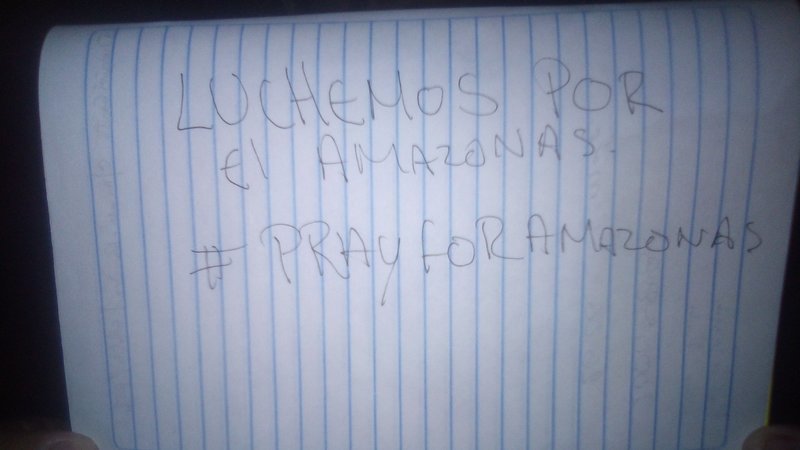 LUCHEMOS POR
El AMAZONAS.
# PRAYFORAMAZONAS